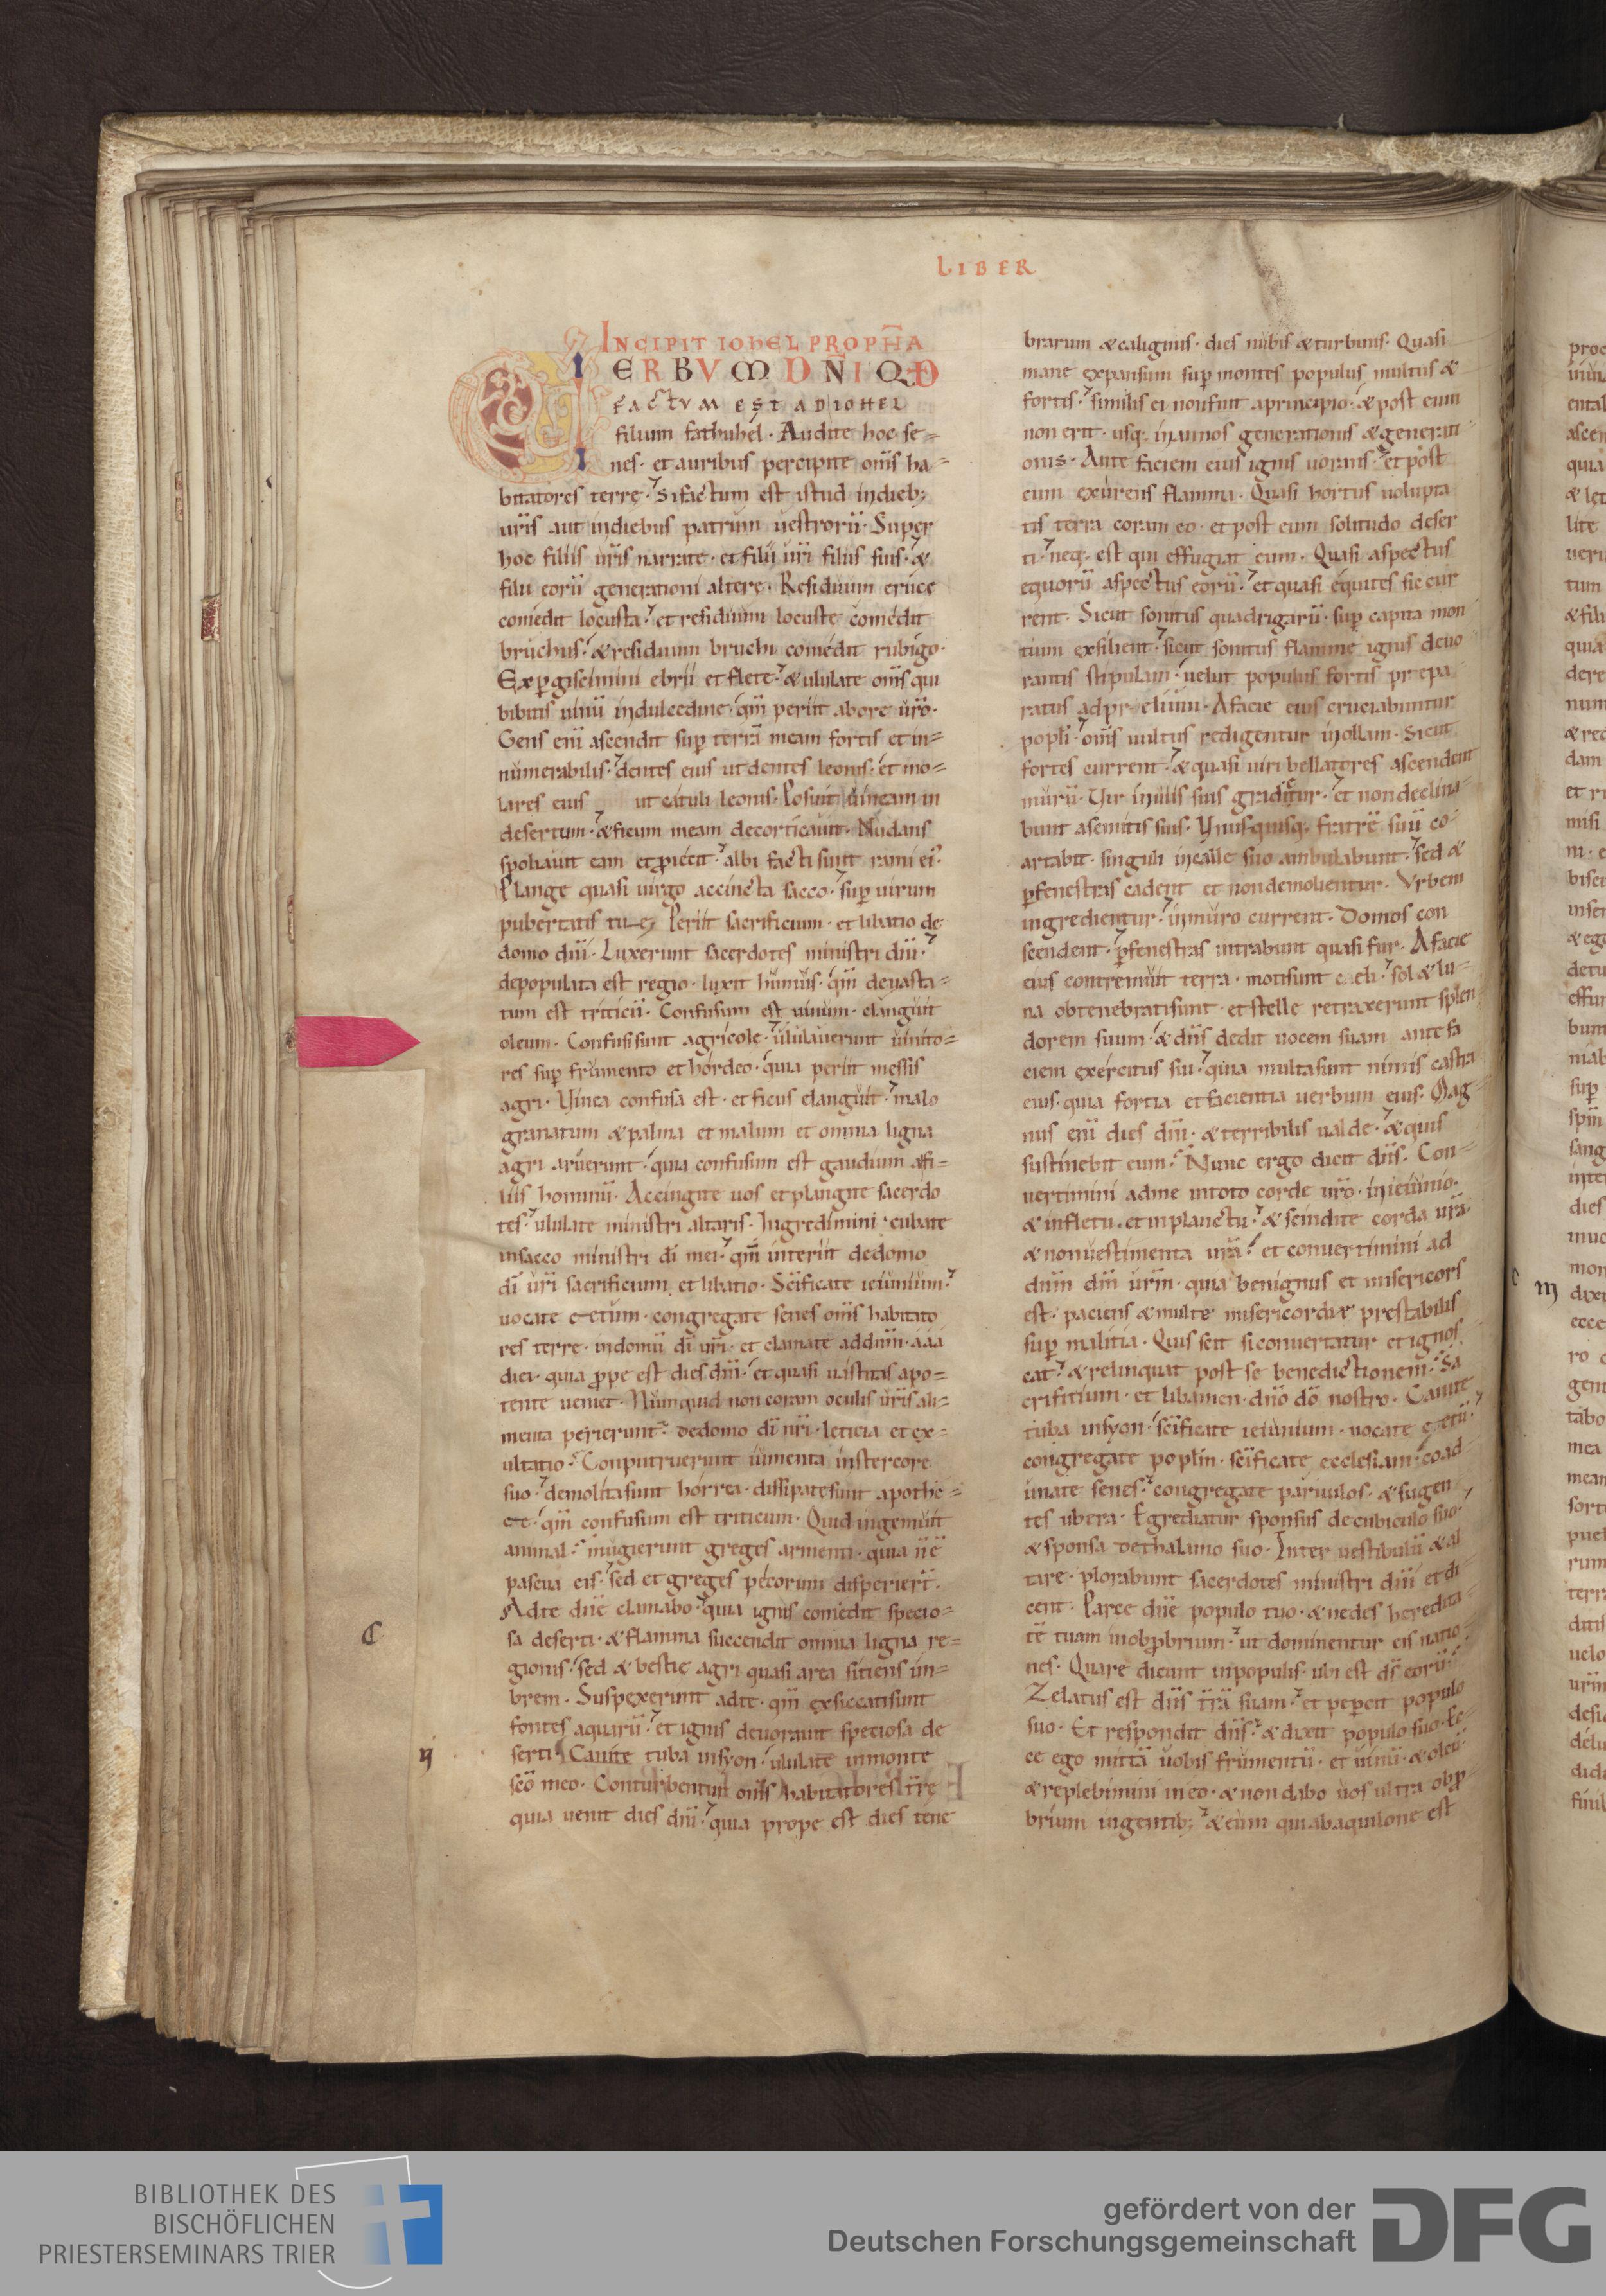 LIBER
INCIPIT IOHEL PROPHA
VERBVM DNI QD
FACTVM EST AD IOHEL
filium fathuhel. Audite hoc se-
nes. et auribus percipite oms ha-
bitatores terre. si factum est istud in dieb;
uris aut in diebus patrum uestroru. Super
hoc filiis uris narrate. et filii uri filiis suis. &
filii eoru generationi altere. Residuum eruce
comedit locusta. et residuum locuste comedit
bruchus. & residuum bruchi comedit rubigo.
Expgiscimini ebrii et flete. & ululate oms qui
bibitis uinu in dulcedine. qm periit ab ore uro.
Gens eni ascendit sup terra meam fortis et in-
numerabilis. dentes eius ut dentes leonis. et mo-
lares eius ut catuli leonis. Posuit uineam in
desertum. & ficum meam decorticauit. Nudans
spoliauit eam et piecit. albi facti sunt rami ei.
Plange quasi uirgo accincta sacco. sup uirum
pubertatis tuę. Periit sacrificium. et libatio de
domo dni. Luxerunt sacerdotes ministri dni.
depopulata est regio. luxit humus. qm deuasta-
tum est triticu. Confusum est uinum. elanguit
oleum. Confusi sunt agricole. ululauerunt uinito-
res sup frumento et hordeo. quia periit messis
agri. Uinea confusa est. et ficus elanguit. malo
granatum & palma et malum et omnia ligna
agri aruerunt. quia confusum est gaudium a fi-
liis hominu. Accingite uos et plangite sacerdo
tes. ululate ministri altaris. Ingredimini. cubate
in sacco ministri di mei. qm interiit de domo
di uri sacrificium et libatio. Scificate ieiunium.
uocate cetum. congregate senes oms habitato
res terre. in domu di uri. et clamate ad dnm. aaa
diei. quia ppe est dies dni. et quasi uastitas a po-
tente ueniet. Numquid non coram oculis uris ali-
menta perierunt. de domo di nri. leticia et ex-
ultatio. Conputruerunt iumenta in stercore
suo. demolita sunt horrea. dissipate sunt apothe-
ce. qm confusum est triticum. Quid ingemuit
animal. mugierunt greges armenti. quia n e
pascua eis. sed et greges pecorum disperiert.
Ad te dne clamabo. quia ignis comedit specio-
sa deserti. & flamma succendit omnia ligna re-
gionis. sed & bestie agri quasi area sitiens im-
brem. Suspexerunt ad te. qm exsiccati sunt
fontes aquaru. et ignis deuorauit speciosa de
serti. Canite tuba in syon. ululate in monte
sco meo. Conturbentur oms habitatores tre
quia uenit dies dni. quia prope est dies tene
brarum & caliginis. dies nubis & turbinis. Quasi
mane expansum sup montes populus multus &
fortis. similis ei non fuit a principio. & post eum
non erit. usq; in annos generationis & generati
onis. Ante faciem eius ignis uorans. et post
eum exurens flamma. Quasi hortus uolupta
tis terra coram eo. et post eum solitudo deser
ti. neq; est qui effugiat eum. Quasi aspectus
equoru aspectus eoru. et quasi equites sic cur
rent. Sicut sonitus quadrigaru. sup capita mon
tium exsilient. sicut sonitus flamme ignis deuo
rantis stipulam. uelut populus fortis prepa
ratus ad prelium. A facie eius cruciabuntur
popli. oms uultus redigentur in ollam. Sicut
fortes current. & quasi uiri bellatores ascendent
muru. Uir in uiis suis gradietur. et non declina
bunt a semitis suis. Unusquisq; fratre suu co-
artabit. singuli in calle suo ambulabunt. sed &
p fenestras cadent et non demolientur. Urbem
ingredientur. in muro current. Domos con
scendent. p fenestras intrabunt quasi fur. A facie
eius contremuit terra. moti sunt caeli. sol & lu-
na obtenebrati sunt. et stelle retraxerunt splen
dorem suum. & dns dedit uocem suam ante fa
ciem exercitus sui. quia multa sunt nimis castra
eius. quia fortia et facientia uerbum eius. Mag
nus eni dies dni. & terribilis ualde. & quis
sustinebit eum. Nunc ergo dicit dns. Con-
uertimini ad me in toto corde uro. in ieiunio.
& in fletu. et in planctu. & scindite corda ura.
& non uestimenta ura. et conuertimini ad
dnm dm urm. quia benignus et misericors
est. paciens & multe misericordiæ prestabilis
sup malitia. Quis scit si conuertatur et ignos
cat. & relinquat post se benedictionem. Sa
crificium. et libamen. dno do nostro. Canite
tuba in syon. scificate ieiunium. uocate cetu.
congregate poplm. scificate ecclesiam. coad
unate senes. congregate paruulos. & sugen
tes ubera. Egrediatur sponsus de cubiculo suo.
& sponsa de thalamo suo. Inter uestibulu & al
tare. plorabunt sacerdotes ministri dni et di
cent. Parce dne populo tuo. & ne des heredita
te tuam in obpbrium. ut dominentur eis natio
nes. Quare dicunt in populis. ubi est ds eoru.
Zelatus est dns tra suam. et pepercit populo
suo. Et respondit dns. & dixit populo suo. Ec-
ce ego mitta uobis frumentu. et uinu. & oleu.
& replebimini in eo. & non dabo uos ultra obp
brium in gentib; & eum qui ab aquilone est
C
ij
m
BIBLIOTHEK DES
BISCHÖFLICHEN
PRIESTERSEMINARS TRIER
gefördert von der
Deutschen Forschungsgemeinschaft
DFG